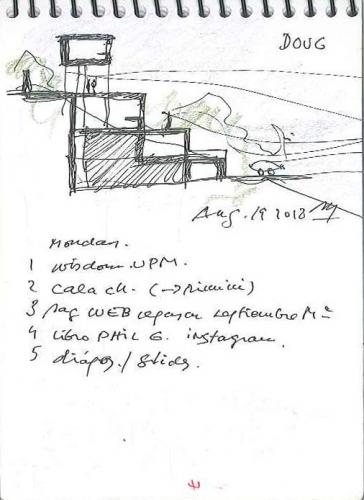 DOUG
Aug. 19 2018
Monday.
1 wisdom. UPM.
2 Cala ch. (→ Rimini)
3 Pag WEB repasar septiembre
4 libro PHIL G. instagram.
5 diápos / slides.